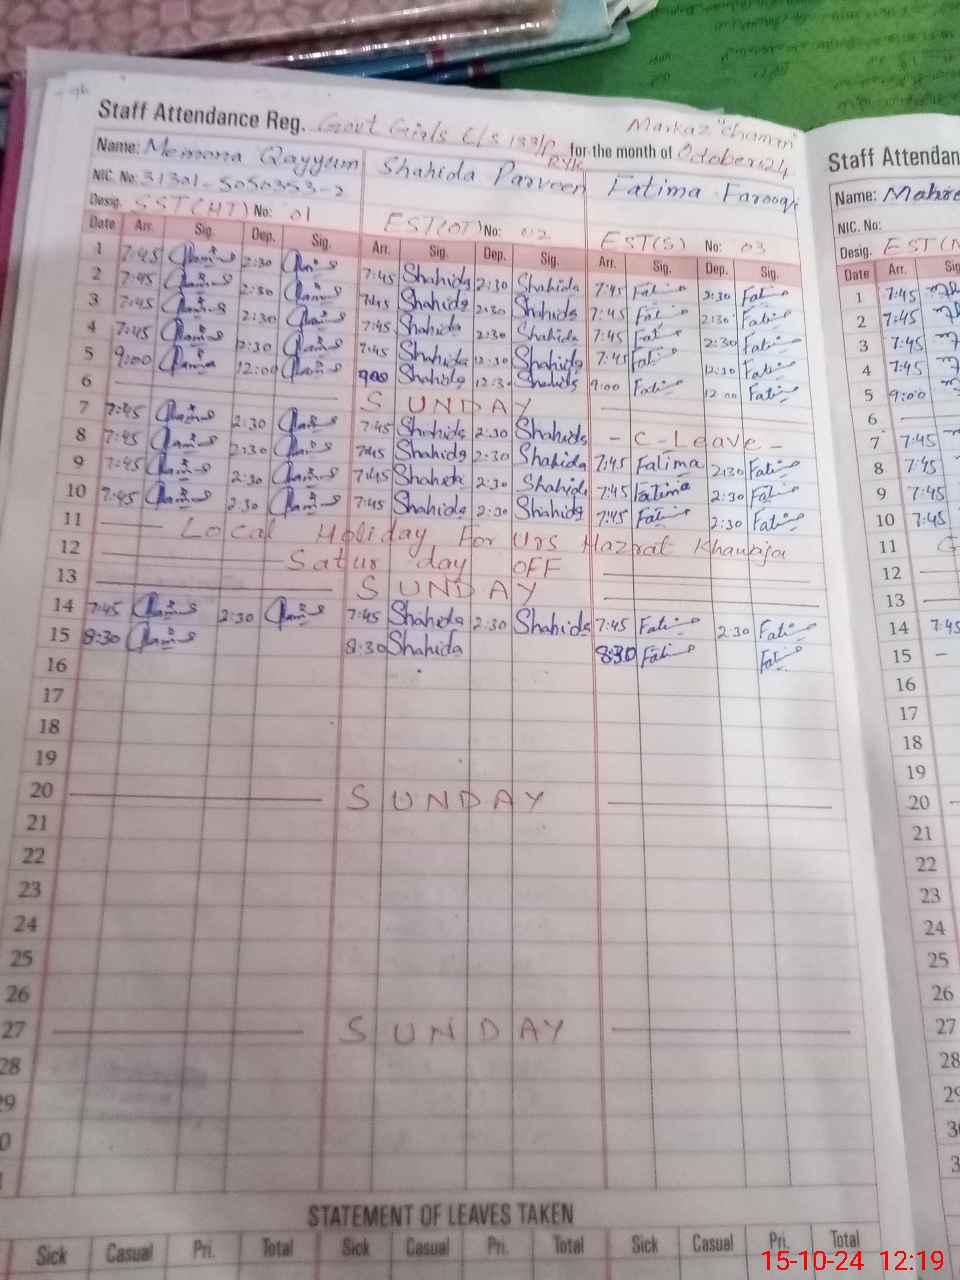 Staff Attendance Reg. Govt Girls E/S 133/P RYK Markaz "Chaman"
for the month of October 24
Name: Memona Qayyum Shahida Parveen Fatima Farooqi
NIC. No: 31301-5050353-2
Desig. SST(HT) No: 01 EST(OT) No: 02 EST(S) No: 03
Date Arr. Sig. Dep. Sig. Arr. Sig. Dep. Sig. Arr. Sig. Dep. Sig.
1 7:45 2:30 7:45 Shahida 2:30 Shahida 7:45 Fati 2:30 Fati
2 7:45 2:30 7:45 Shahida 2:30 Shahida 7:45 Fati 2:30 Fati
3 7:45 2:30 7:45 Shahida 2:30 Shahida 7:45 Fati 2:30 Fati
4 7:45 2:30 7:45 Shahida 12:30 Shahida 7:45 Fati 12:30 Fati
5 9:00 12:00 9:00 Shahida 12:3 Shahida 9:00 Fati 12:00 Fati
6 SUNDAY
7 7:45 2:30 7:45 Shahida 2:30 Shahida - C-Leave -
8 7:45 2:30 7:45 Shahida 2:30 Shahida 7:45 Fatima 2:30 Fati
9 7:45 2:30 7:45 Shahida 2:30 Shahida 7:45 Fatima 2:30 Fati
10 7:45 2:30 7:45 Shahida 2:30 Shahida 7:45 Fati 2:30 Fati
11 Local Holiday For Urs Hazrat Khawaja
12 Saturday OFF
13 SUNDAY
14 7:45 2:30 7:45 Shahida 2:30 Shahida 7:45 Fati 2:30 Fati
15 8:30 8:30 Shahida 8:30 Fati Fati
16
17
18
19
20 SUNDAY
21
22
23
24
25
26
27 SUNDAY
28
29
STATEMENT OF LEAVES TAKEN
Sick Casual Pri. Total Sick Casual Pri. Total Sick Casual Pri. Total
Staff Attendan
Name:
NIC. No:
Desig. EST
Date Arr.
1 7:45
2 7:45
3 7:45
4 7:45
5 9:00
6
7 7:45
8 7:45
9 7:45
10 7:45
11
12
13
14 7:45
15 -
16
17
18
19
20
21
22
23
24
25
26
27
28
15-10-24 12:19